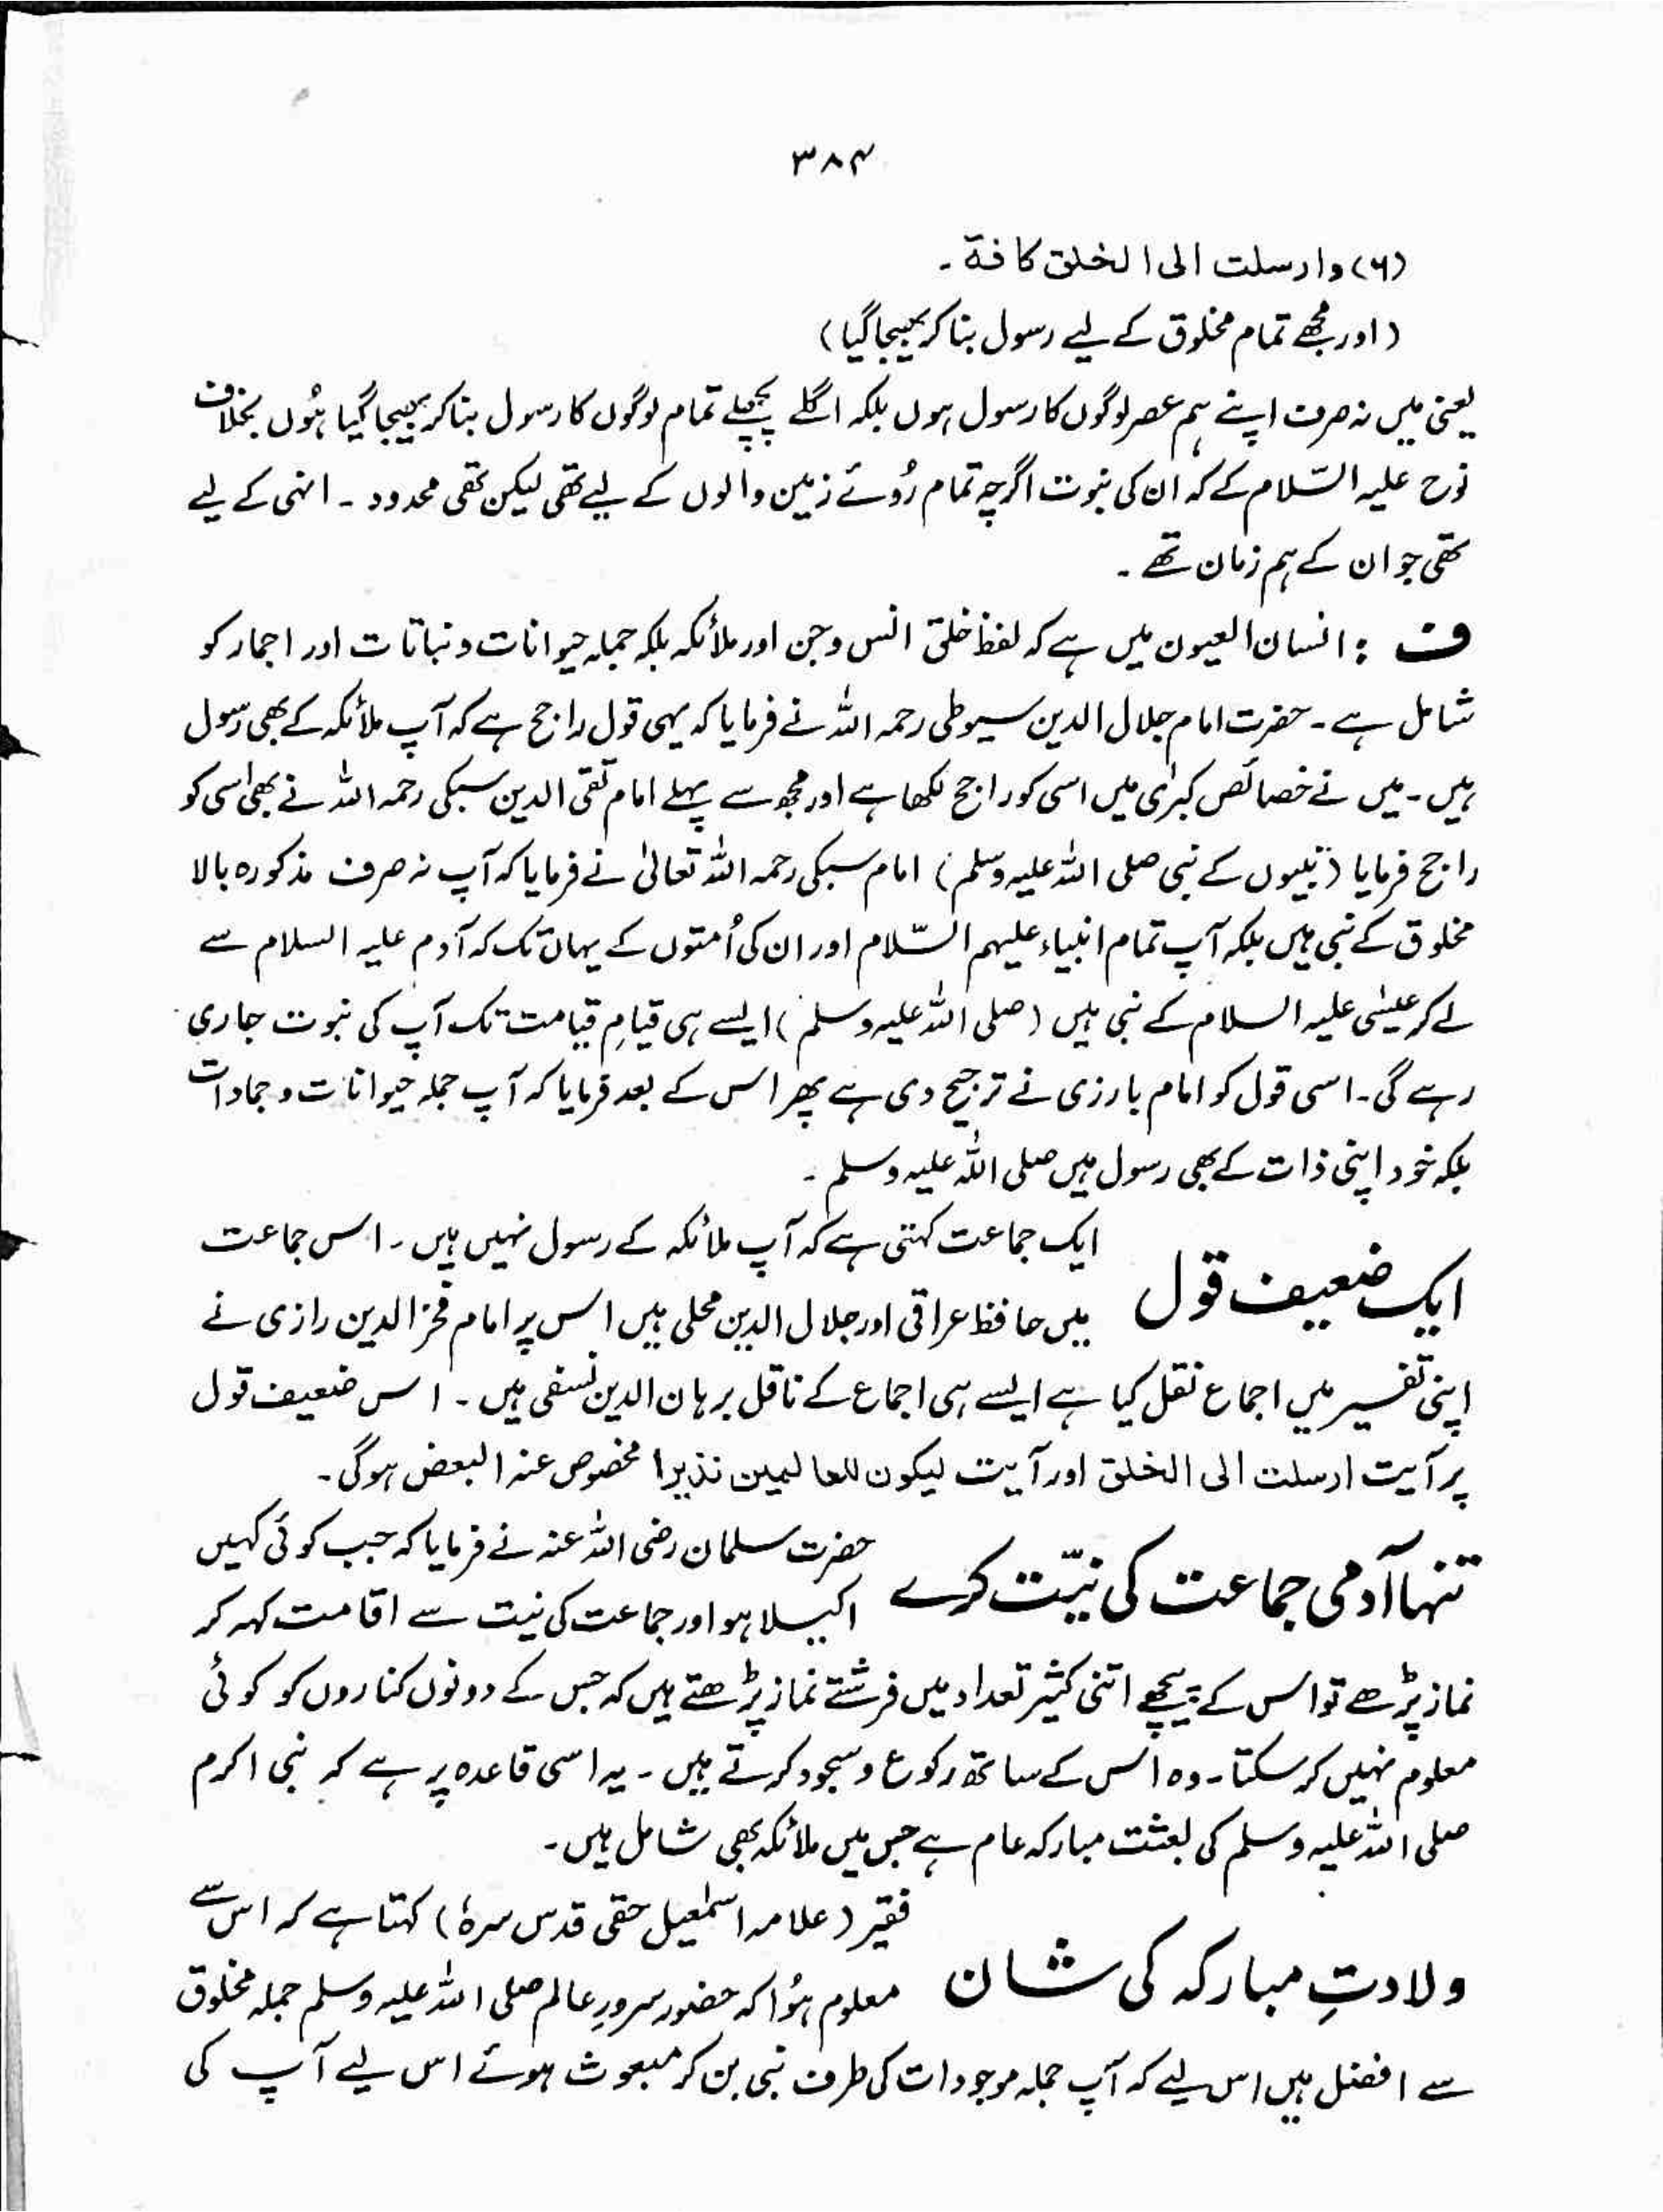 ۳۸۴
(۶) وارسلت الی الخلق کافۃ۔
(اور مجھے تمام مخلوق کے لیے رسول بنا کر بھیجا گیا)
یعنی میں نہ صرف اپنے ہم عصر لوگوں کا رسول ہوں بلکہ اگلے پچھلے تمام لوگوں کا رسول بنا کر بھیجا گیا ہُوں بخلاف
نوح علیہ السّلام کے کہ ان کی نبوت اگرچہ تمام رُوئے زمین والوں کے لیے تھی لیکن تھی محدود ۔ انہی کے لیے
تھی جو ان کے ہم زمان تھے ۔
ف : انسان العیون میں ہے کہ لفظ خلق انس وجن اور ملائکہ بلکہ جملہ حیوانات و نباتات اور احجار کو
شامل ہے ۔ حضرت امام جلال الدین سیوطی رحمہ اللہ نے فرمایا کہ یہی قول راجح ہے کہ آپ ملائکہ کے بھی رسول
ہیں ۔ میں نے خصائص کبرٰی میں اسی کو راجح لکھا ہے اور مجھ سے پہلے امام تقی الدین سبکی رحمہ اللہ نے بھی اسی کو
راجح فرمایا (نبیوں کے نبی صلی اللہ علیہ وسلم) امام سبکی رحمہ اللہ تعالیٰ نے فرمایا کہ آپ نہ صرف مذکورہ بالا
مخلوق کے نبی ہیں بلکہ آپ تمام انبیاء علیہم السّلام اور ان کی اُمتوں کے یہاں تک کہ آدم علیہ السلام سے
لے کر عیسٰی علیہ السلام کے نبی ہیں (صلی اللہ علیہ وسلم) ایسے ہی قیامِ قیامت تک آپ کی نبوت جاری
رہے گی ۔ اسی قول کو امام بارزی نے ترجیح دی ہے پھر اس کے بعد فرمایا کہ آپ جملہ حیوانات و جمادات
بلکہ خود اپنی ذات کے بھی رسول ہیں صلی اللہ علیہ وسلم ۔
ایک ضعیف قول ایک جماعت کہتی ہے کہ آپ ملائکہ کے رسول نہیں ہیں ۔ اس جماعت
میں حافظ عراقی اور جلال الدین محلی ہیں اس پر امام فخر الدین رازی نے
اپنی تفسیر میں اجماع نقل کیا ہے ایسے ہی اجماع کے ناقل برہان الدین نسفی ہیں ۔ اس ضعیف قول
پر آیت ارسلت الی الخلق اور آیت لیکون للعالمین نذیرا مخصوص عنہ البعض ہوگی ۔
تنہا آدمی جماعت کی نیّت کرے حضرت سلمان رضی اللہ عنہ نے فرمایا کہ جب کوئی کہیں
اکیلا ہو اور جماعت کی نیت سے اقامت کہہ کر
نماز پڑھے تو اس کے پیچھے اتنی کثیر تعداد میں فرشتے نماز پڑھتے ہیں کہ جس کے دونوں کناروں کو کوئی
معلوم نہیں کر سکتا ۔ وہ اس کے ساتھ رکوع و سجود کرتے ہیں ۔ یہ اسی قاعدہ پر ہے کہ نبی اکرم
صلی اللہ علیہ وسلم کی بعثت مبارکہ عام ہے جس میں ملائکہ بھی شامل ہیں ۔
ولادتِ مبارکہ کی شان فقیر (علامہ اسمٰعیل حقی قدس سرہٗ) کہتا ہے کہ اس سے
معلوم ہُوا کہ حضور سرورِ عالم صلی اللہ علیہ وسلم جملہ مخلوق
سے افضل ہیں اس لیے کہ آپ جملہ موجودات کی طرف نبی بن کر مبعوث ہوئے اس لیے آپ کی